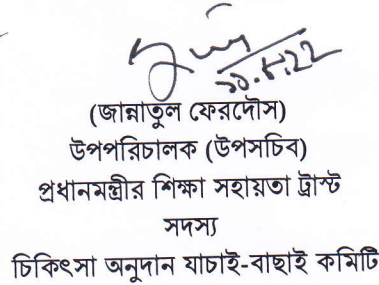 (জান্নাতুল ফেরদৌস)
উপপরিচালক (উপসচিব)
প্রধানমন্ত্রীর শিক্ষা সহায়তা ট্রাস্ট
সদস্য
চিকিৎসা অনুদান যাচাই-বাছাই কমিটি